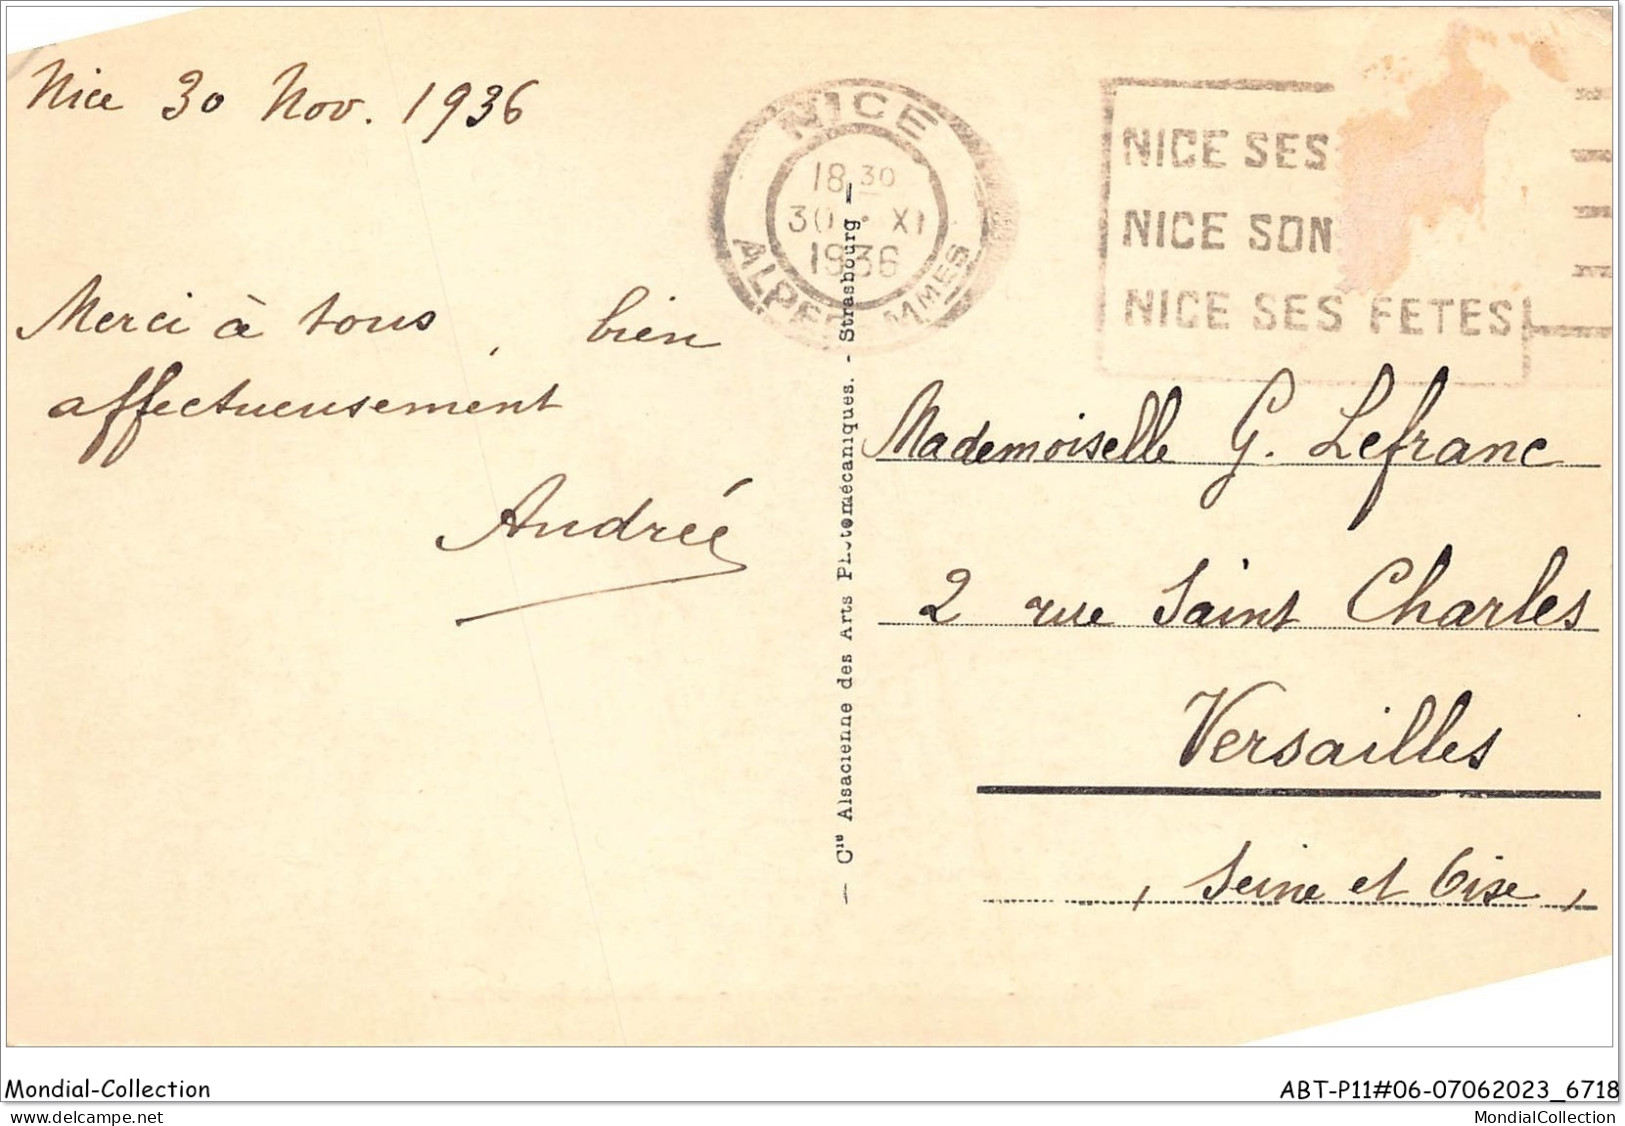 Nice 30 Nov. 1936
NICE
18 30
30 · XI
1936
ALPES MMES
NICE SES
NICE SON
NICE SES FETES
Merci à tous, bien
affectueusement
Andrée
— Cie Alsacienne des Arts Photomécaniques. - Strasbourg —
Mademoiselle G. Lefranc
2 rue Saint Charles
Versailles
, Seine et Oise,
Mondial-Collection
ABT-P11#06-07062023_6718
www.delcampe.net
MondialCollection